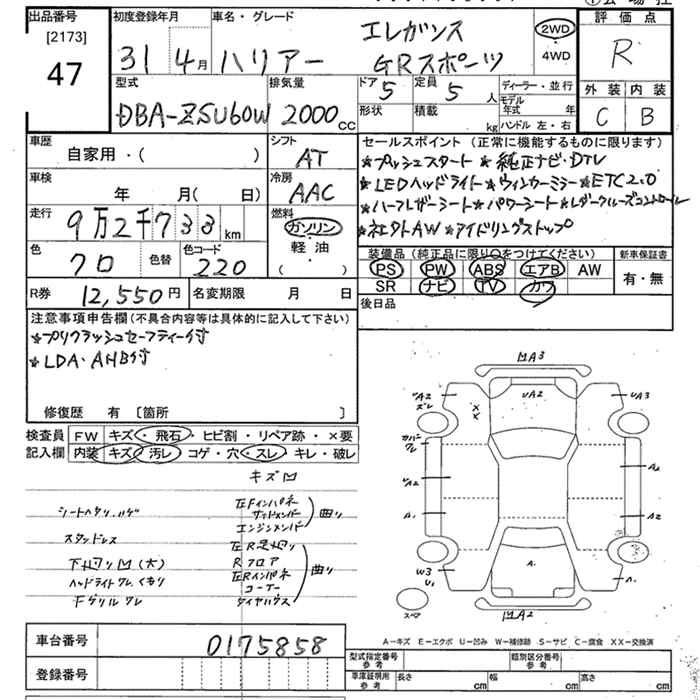 出品番号
[2173]
47
初度登録年月
31 4月
車名・グレード
ハリアー
エレガンス
GRスポーツ
2WD
・
4WD
評価点
R
外装 内装
C B
型式
DBA-ZSU60W
排気量
2000cc
ドア
5
定員
5人
形状
積載
kg
ディーラー・並行
モデル年式 年
ハンドル 左・右
車歴
自家用・( )
シフト
AT
車検
年 月( 日)
冷房
AAC
走行
9万2千733km
燃料
ガソリン
軽・油
( )
色
クロ
色替
色コード
220
R券
12,550円
名変期限 月 日
セールスポイント(正常に機能するものに限ります)
★プッシュスタート ★純正ナビ・DTV
★LEDヘッドライト ★ウィンカーミラー ★ETC2.0
★ハーフレザーシート ★パワーシート ★レーダークルーズコントロール
★社外AW ★アイドリングストップ
装備品(純正品に限り○をつけてください)
PS PW ABS エアB AW
SR ナビ TV カワ
新車保証書
有・無
後日品
注意事項申告欄(不具合内容等は具体的に記入して下さい)
★プリクラッシュセーフティー付
★LDA・AHB付
修復歴 有 〔箇所 〕
検査員記入欄
FW キズ・飛石・ヒビ割・リペア跡・×要
内装 キズ・汚レ・コゲ・穴・スレ・キレ・破レ
キズ凹
シートヘタリ・ハゲ
スタッドレス
下廻り凹(大)
ヘッドライトワレ、くもり
Fグリルワレ
左Fインパネ
サイドメンバー
エンジンメンバー
曲り
左R足廻り
Rフロア
左Rインパネ
コーナー
タイヤハウス
曲り
凹A3
UA2
UA2
ズレ
××
UA3
カバー
ワレ
UA2
A1
A2
A2
W3
U1
A1
凹A2
スペア
A-キズ E-エクボ U-凹み W-補修跡 S-サビ C-腐食 XX-交換済
車台番号
0175858
登録番号
型式指定番号
参考
類別区分番号
参考
車庫証明用
参考
長さ cm
幅 cm
高さ cm